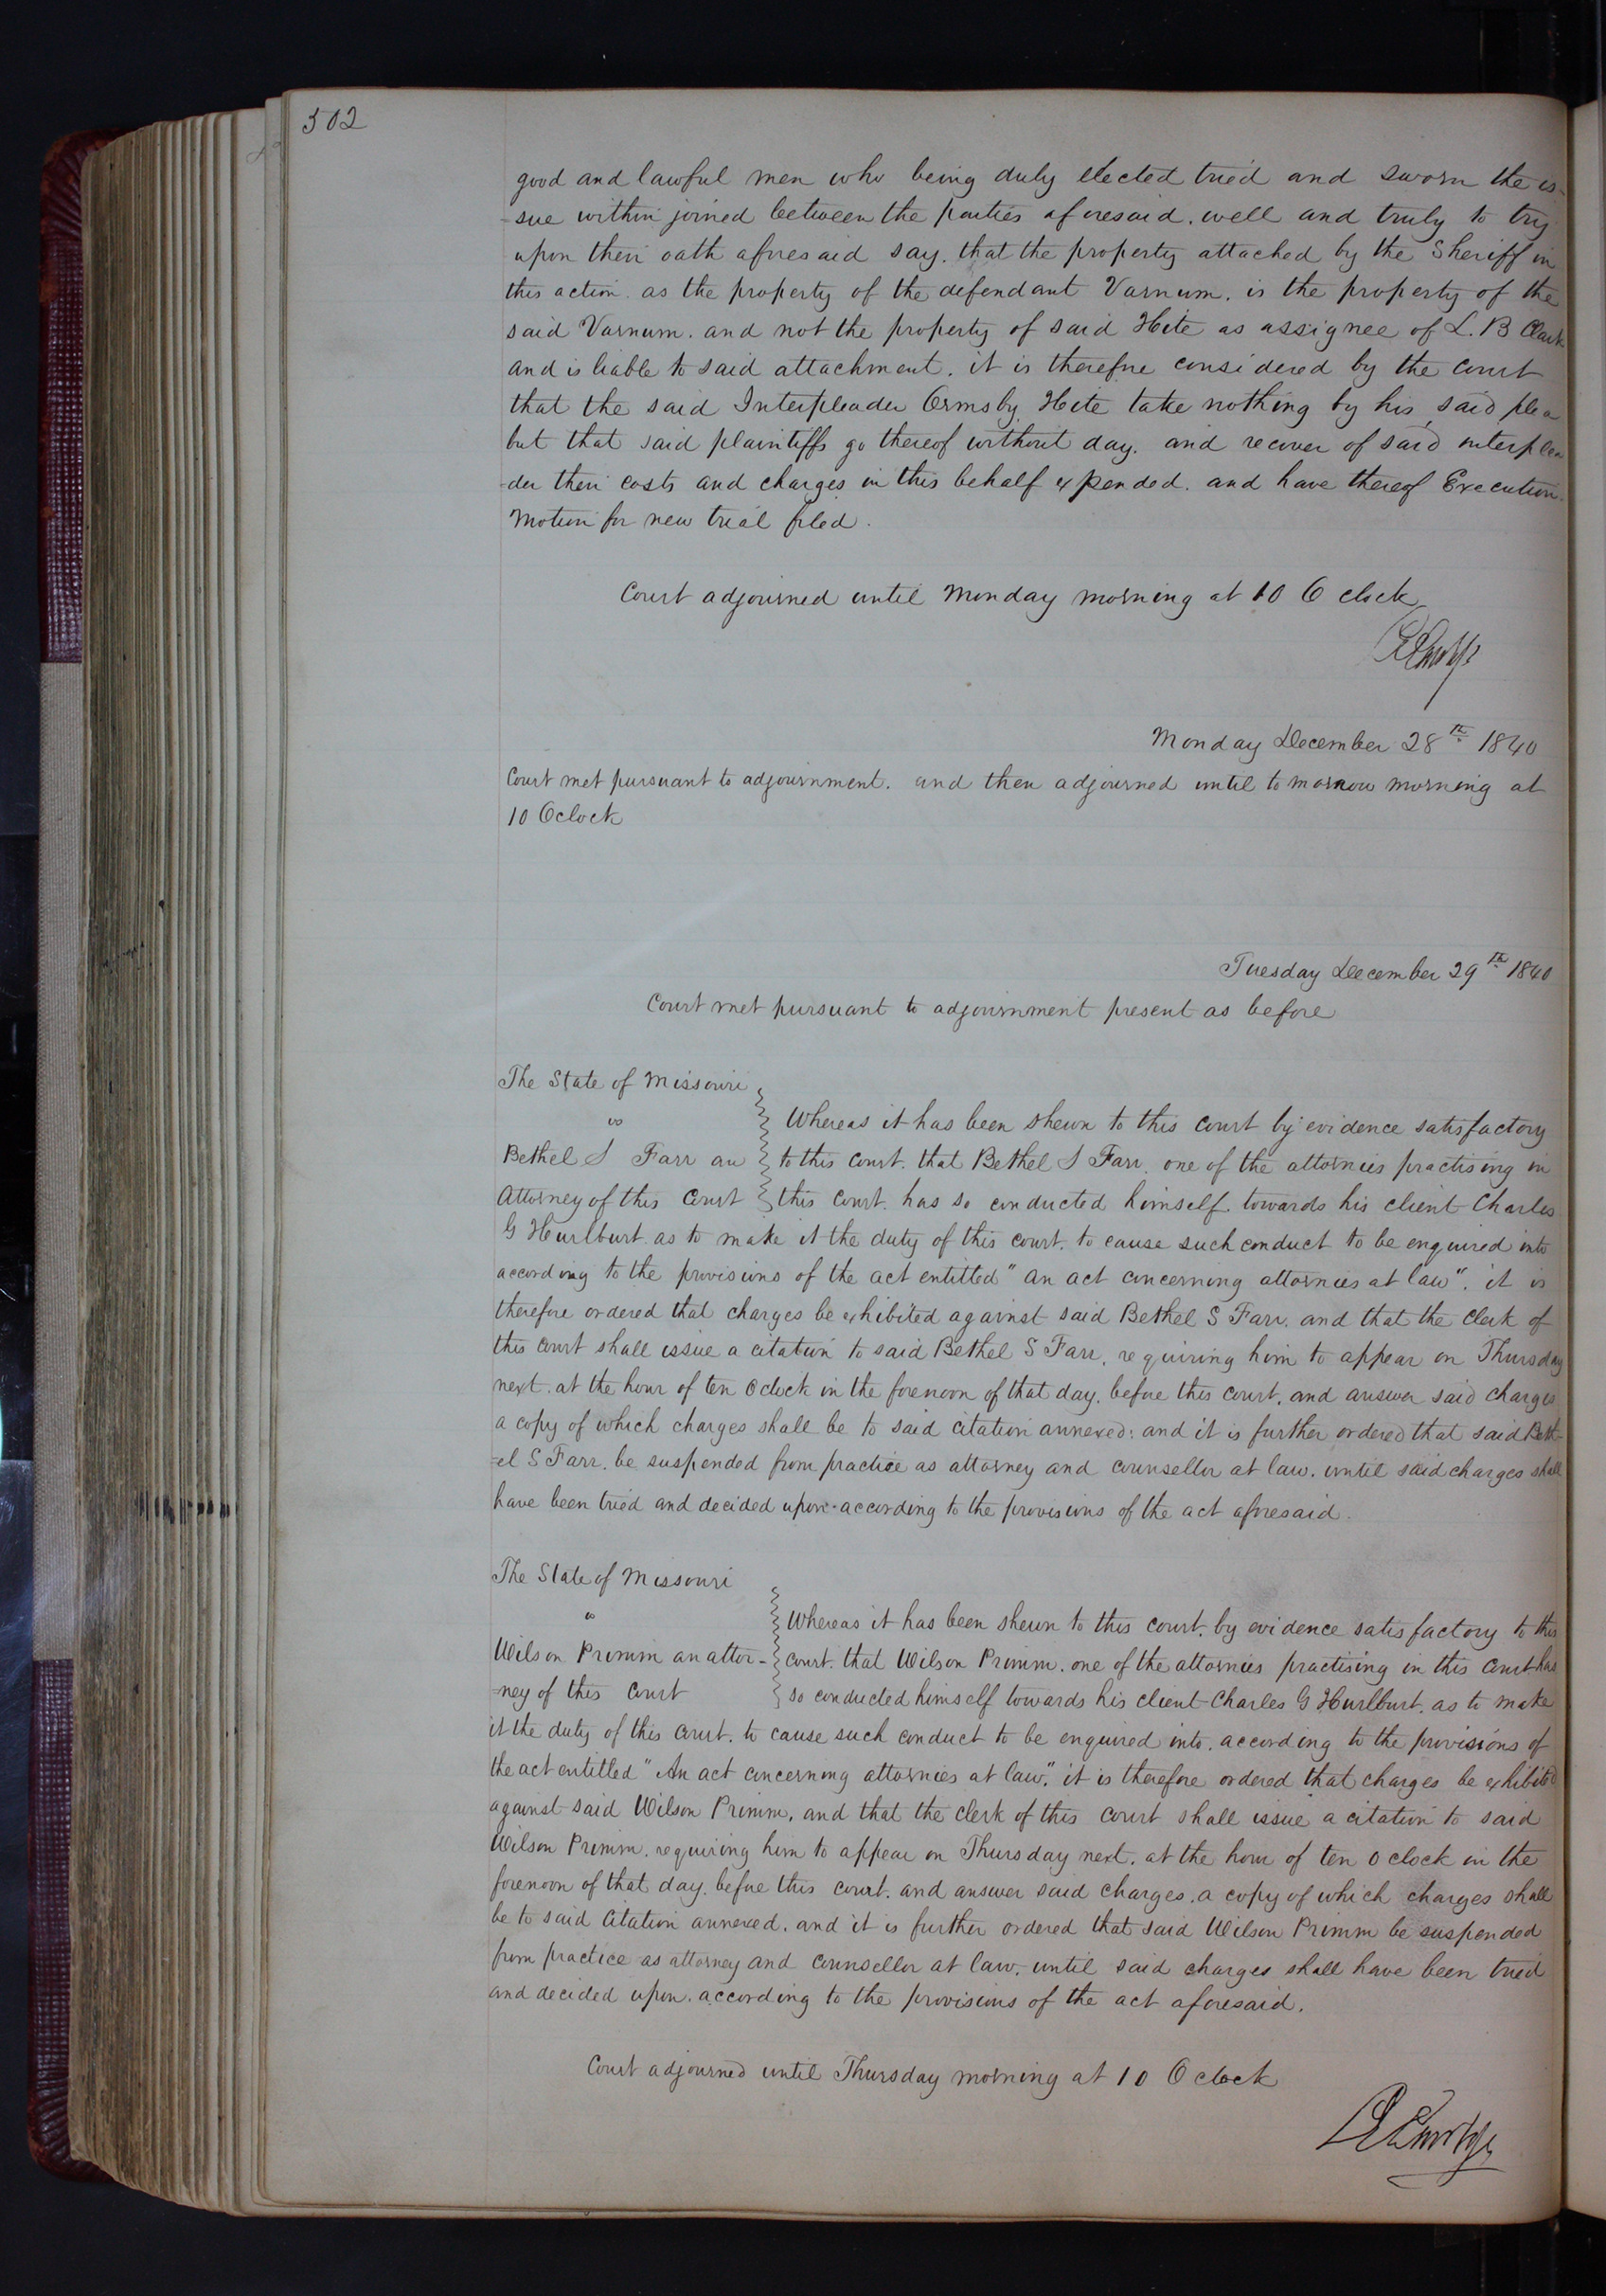 502
good and lawful men who being duly elected tried and sworn the is-
-sue within joined between the parties aforesaid. well and truly to try
upon their oath aforesaid say. that the property attached by the Sheriff in
this action. as the property of the defendant Varnum. is the property of the
said Varnum. and not the property of said Hite as assignee of L. B Clark
and is liable to said attachment. it is therefore considered by the court
that the said Interpleader Ormsby Hite take nothing by his said plea
but that said plaintiffs go thereof without day. and recover of said interplea
-der their costs and charges in this behalf expended. and have thereof Execution.
Motion for new trial filed.
Court adjourned until Monday morning at 10 O clock
Monday December 28th 1840
Court met pursuant to adjournment. and then adjourned until to morrow morning at
10 Oclock
Tuesday December 29th 1840
Court met pursuant to adjournment present as before
The State of Missouri
vs
Whereas it has been shewn to this court by evidence satisfactory
Bethel S Farr an
to this court. that Bethel S Farr. one of the attornies practising in
Attorney of this Court
this court. has so conducted himself. towards his client Charles
G Hurlburt. as to make it the duty of this court. to cause such conduct to be enquired into
according to the provisions of the act entitled "an act concerning attornies at law". it is
therefore ordered that charges be exhibited against said Bethel S Farr. and that the Clerk of
this court shall issue a citation to said Bethel S Farr, requiring him to appear on Thursday
next. at the hour of ten Oclock in the forenoon of that day. before this court. and answer said charges
a copy of which charges shall be to said citation annexed: and it is further ordered that said Beth-
-el S Farr. be suspended from practice as attorney and counsellor at law. until said charges shall
have been tried and decided upon according to the provisions of the act aforesaid.
The State of Missouri
vs
Whereas it has been shewn to this court. by evidence satisfactory to this
Wilson Primm an attor-
court. that Wilson Primm. one of the attornies practising in this court has
-ney of this Court
so conducted himself towards his client Charles G Hurlburt. as to make
it the duty of this court. to cause such conduct to be enquired into. according to the provisions of
the act entitled "An act concerning attornies at law." it is therefore ordered that charges be exhibited
against said Wilson Primm, and that the clerk of this court shall issue a citation to said
Wilson Primm. requiring him to appear on Thursday next. at the hour of ten o clock in the
forenoon of that day. before this court. and answer said charges. a copy of which charges shall
be to said Citation annexed. and it is further ordered that said Wilson Primm be suspended
from practice as attorney and counsellor at law. until said charges shall have been tried
and decided upon. according to the provisions of the act aforesaid.
Court adjourned until Thursday morning at 10 O clock